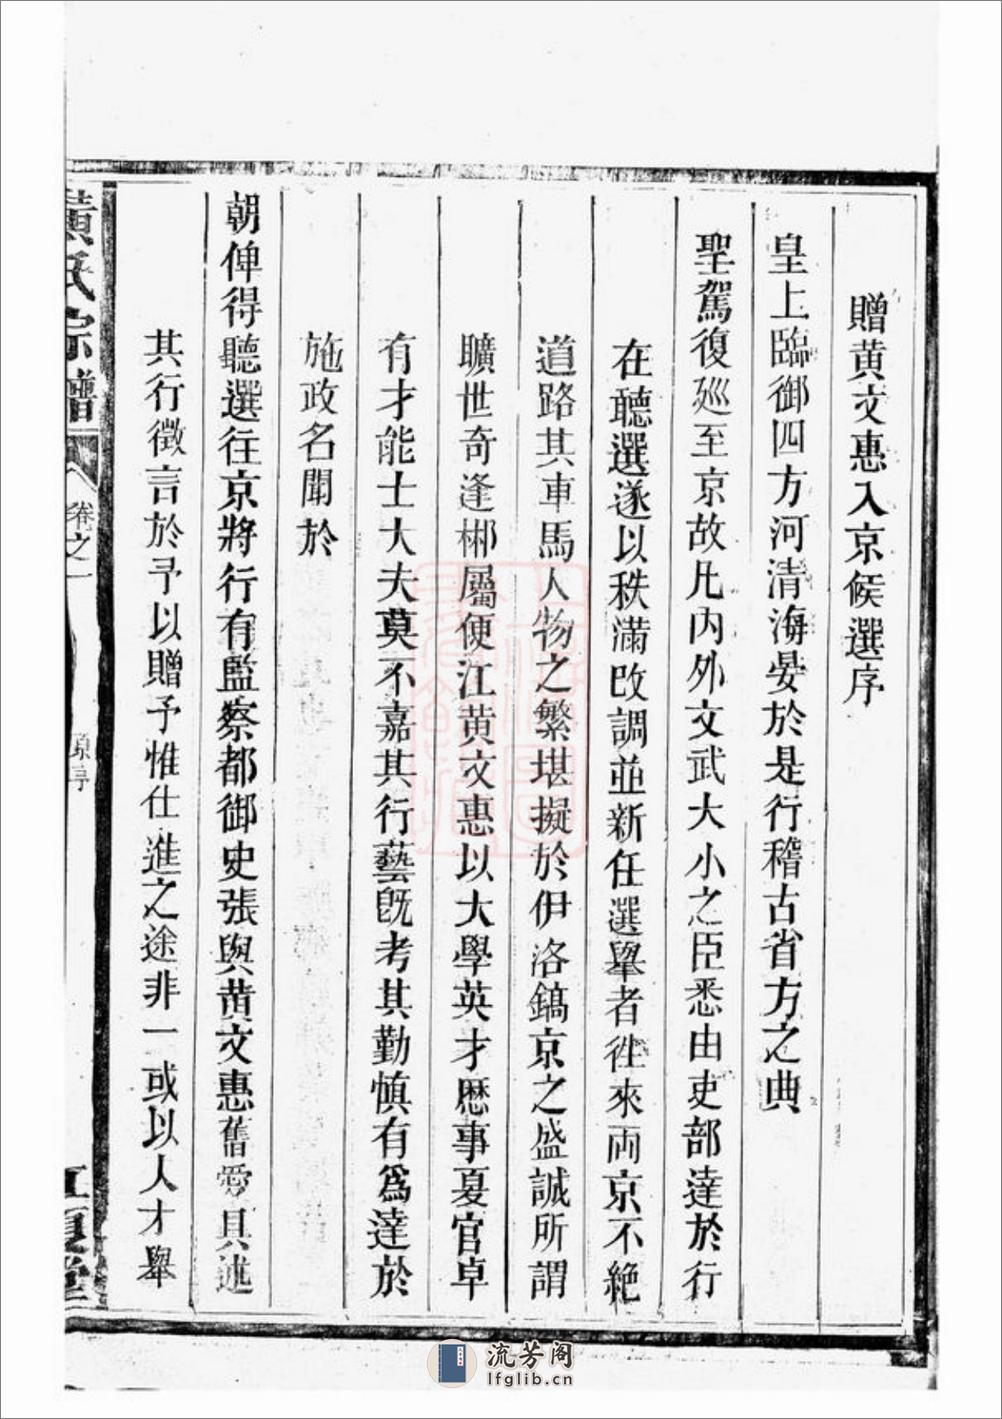 贈黄文惠入京候選序
皇上臨御四方河清海晏於是行稽古省方之典
聖駕復廵至京故凡内外文武大小之臣悉由吏部達於行
在聽選遂以秩滿改調並新任選舉者徃來両京不絶
道路其車馬人物之繁堪擬於伊洛鎬京之盛誠所謂
曠世奇逢郴屬便江黄文惠以大學英才歴事夏官卓
有才能士大夫莫不嘉其行藝既考其勤慎有爲達於
施政名聞於
朝俾得聽選往京將行有監察都御史張與黄文惠舊愛具述
其行徵言於予以贈予惟仕進之途非一或以人才舉
黄氏宗譜
卷之一
原序
江夏堂
流芳阁
lfglib.cn